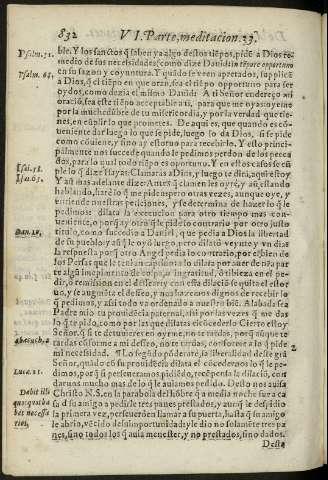 832 VI. Parte, meditacion. 23.
Psalm. 31.
ble. Y los sanctos q̃ saben ya algo destos tiẽpos, pidẽ a Dios re-
medio de sus necesidades, como dize Dauid: in tẽpore opportuno
Psalm. 68.
en su sazon y coyuntura. Y quãdo se veen apretados, supplicã
a Dios, q̃ el en que oran, sea el tiẽpo opportuno para ser
oydos, como dezia el mismo Dauid: A ti Señor endereço mi
oraciõ, sea este tiẽpo acceptable a ti, para que me oyas
por la muchedũbre de tu misericordia, y por la verdad que tie-
nes, en cũplir lo que prometes. De aqui es, que quando es cõ-
ueniente dar luego lo que se pide, luego lo dà Dios, si se pide
como cõuiene, y sino ay estoruo para recebirlo. Y esto princi-
palmente nos succede quando le pedimos perdon de los pecca-
dos, para lo qual todo tiẽpo es oportuno. Y en estos casos se cũ-
Isai. 58.
ple lo q̃ dize Isayas: Clamaràs a Dios, y luego te dirà, aqui estoy.
Isai. 65.
Y aũ mas adelante dize: Antes q̃ clamen les oyrè, y aũ estando
hablando, harè lo q̃ me pidẽ, pero otras vezes, aunque oye, y
entiende nuestras peticiones, y se determina de hazer lo q̃ le
pedimos: dilata la execucion para otro tiempo mas con-
ueniente, o porq̃ ay otro q̃ le pide lo contrario por otro justo
Dan. 10.
titulo, como succediò a Daniel, que pedia a Dios la libertad
de su pueblo, y aũq̃ le oyò luego, pero dilatò veynte y vn dias
la respuesta porq̃ otro Angel pedia lo contrario, por el bien de
los Persas que le tenian captiuo: o lo dilata por auer de nr̃a par
te algũ impedimento de culpa, o ingratitud, ò tibieza en el pe-
dir, ò remission en el dessear, y con esta dilaciõ se quita el estor
uo, y se augmẽta el desseo, y nos hazemos dignos de recebir lo
q̃ pedimos, y assi todo va ordenado a nuestro biẽ. Alabada sea
Padre mio tu prouidẽcia paternal, assi por las vezes q̃ me das
lo q̃ te pido, como por las que dilatas el cõcederlo. Cierto estoy
Señor, q̃ si te detuuieres en oyrme, no te tardas, porq̃ aũque te
Abacuch. 2.
tardas cõforme a mi desseo, no te tardas, conforme a lo q̃ pide
mi necessidad. ¶ Lo segũdo põderarè, la liberalidad deste grã
2
Señor, quãdo cõ su prouidẽcia dilata el cõcedernos lo q̃ le pe-
dimos, porq̃ si perseueramos pidiẽdo, recõpensa la dilaciõ, con
darnos mucho mas de lo q̃ le auiamos pedido. Desto nos auisa
Luca. 11.
Christo N. S. en la parabola del hõbre q̃ a media noche fue a ca
sa d̃ su amigo a pedirle tres panes prestados, y aunq̃ le despidio
Dabit illi
quotquot ha
bet necessa
rios.
la primera vez, perseuerò en llamar a su puerta, hasta q̃ su amigo
le abrio, vẽcido de su importunidad, y le dio no solamẽte tres pa
nes, sino todos los q̃ auia menester, y no prestados, sino dados.
Desta